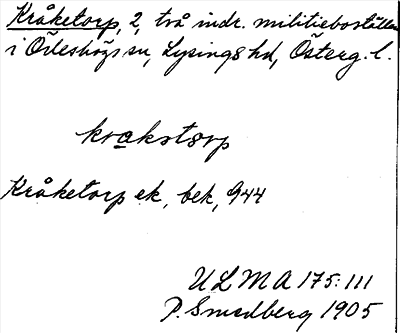 Kråketorp, 2, två indr. militieboställen
i Ödeshögs sn, Lysings hd, Österg. l.
krakstorp
Kråketorp ek, bek, 944
ULMA 175:111
P. Smedberg 1905